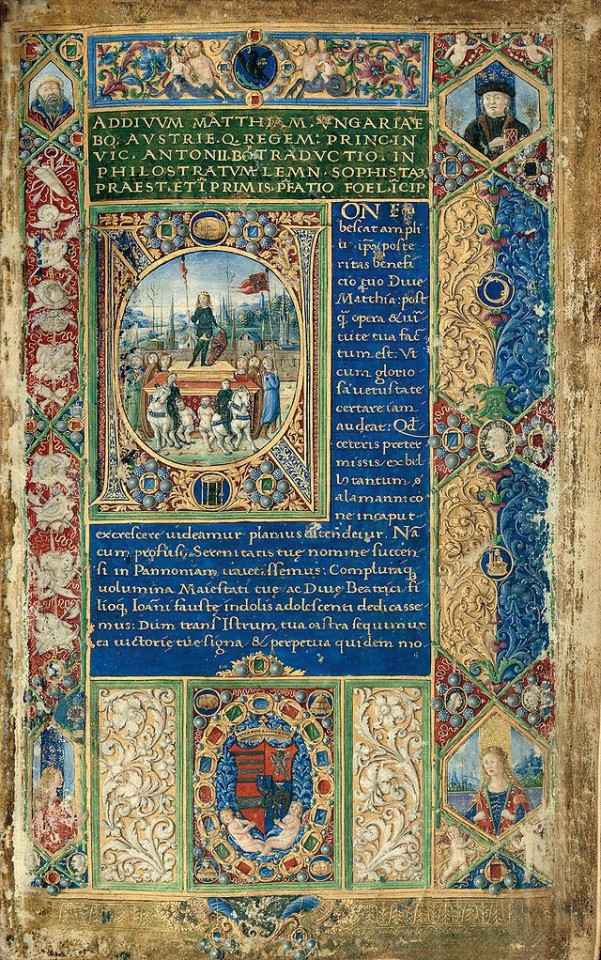 AD DIVVM MATTHIAM VNGARIAE
BO, AVSTRIE. Q. REGEM: PRINC. IN
VIC. ANTONII. BO TRADVCTIO. IN
PHILOSTRATVM LEMN, SOPHISTA
PRAEST, ET I PRIMIS. PFATIO FOEL, ICIP
ON
bescat ampli
u: ipa poste
ritas benefi
cio tuo Diue
Matthia: post
q̃ opera & uir
tute tua fac
tum est: Vt
cum glorio
sa uetustate
certare iam
audeat: Qd
ceteris preter
missis ex bel
lo tantum
alamannico
ne in caput
excrescere uideamur planius ostendetur. Nã
cum profusi Serenitatis tuę nomine succen
si in Pannoniam uenissemus: Compluraq,
volumina Maiestati tue ac Diue Beatrici fi
lioq, Ioãni fauste indolis adolescenti dedicasse
mus: Dum trans Istrum tua castra sequimur
ea uictorie tue signa & perpetua quidem mo